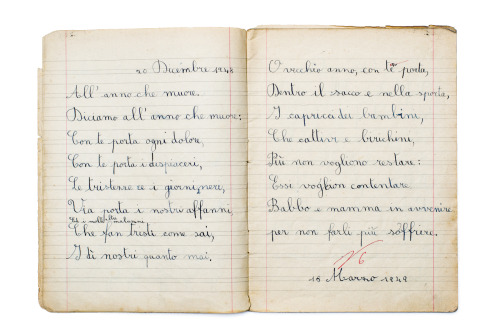 20 Dicembre 1948
All'anno che muore.
Diciamo all'anno che muore:
Con te porta ogni dolore,
Con te porta i dispiaceri,
Le tristesse e i giorni neri,
Via porta i nostri affanni,
Che fan tristi come sai,
I dì nostri quanto mai.
O vecchio anno, con te porta,
Dentro il sacco e nella sporta,
I capricci dei bambini,
Che cattivi e birichini,
Più non vogliono restare:
Essi voglion contentare
Babbo e mamma in avvenire
per non farli più soffrire.
16 Marzo 1949